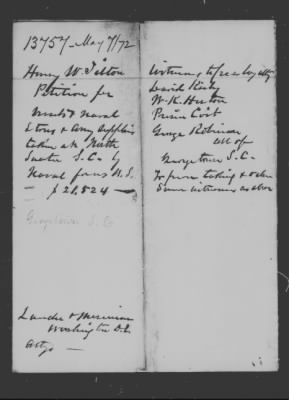 13757 - May 7/72
Henry W. Tilton
Petition for
Naval
Stores & Army Supplies
taken at North
Santee S.C. by
Naval forces U.S.
— $21,524 —
Georgetown S.C.
Washington D.C.
Attys —
Witnesses to
David Risley
W. K. Heston
George Robinson
all of
Georgetown S.C.
To prove taking &
Same witnesses as above